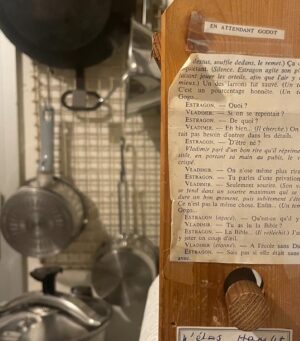 EN ATTENDANT GODOT
dessus, souffle dedans, le remet.) Ça
inquiétant. (Silence. Estragon agite son
faisant jouer les orteils, afin que l'air y
mieux.) Un des larrons fut sauvé. (Un
C'est un pourcentage honnête. (Un
Gogo...
ESTRAGON. — Quoi ?
VLADIMIR. — Si on se repentait ?
ESTRAGON. — De quoi ?
VLADIMIR. — Eh bien... (Il cherche.) On
rait pas besoin d'entrer dans les détails.
ESTRAGON. — D'être né ?
Vladimir part d'un bon rire qu'il réprime
sitôt, en portant sa main au pubis, le
crispé.
VLADIMIR. — On n'ose même plus rire.
ESTRAGON. — Tu parles d'une privation
VLADIMIR. — Seulement sourire. (Son
se fend dans un sourire maximum qui se
dure un bon moment, puis subitement s'éteint
Ce n'est pas la même chose. Enfin... (Un
Gogo...
ESTRAGON (agacé). — Qu'est-ce qu'il y
VLADIMIR. — Tu as lu la Bible ?
ESTRAGON. — La Bible... (Il réfléchit.) J'ai
y jeter un coup d'œil.
VLADIMIR (étonné). — A l'école sans Dieu
ESTRAGON. — Sais pas si elle était sans